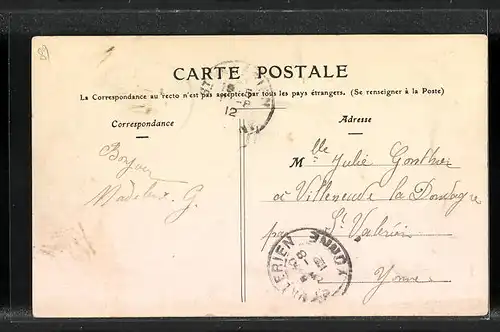 CARTE POSTALE
La Correspondance au recto n'est pas acceptée par tous les pays étrangers. (Se renseigner à la Poste)
Correspondance
Adresse
Bonjour
Madeleine G.
Mlle Julie Gonthier
à Villeneuve la Dondagre
par St Valérien
Yonne
12
ST VALERIEN
YONNE